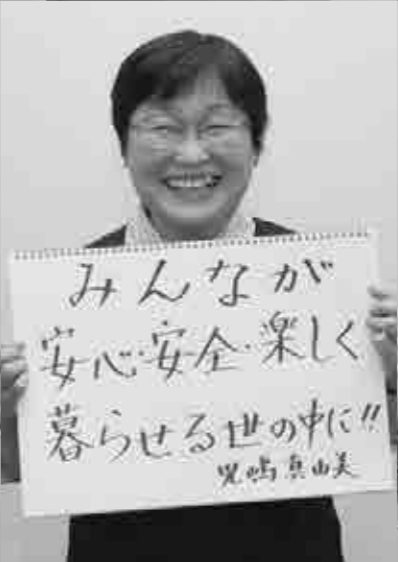 みんなが
安心・安全・楽しく
暮らせる世の中に!!
児嶋真由美